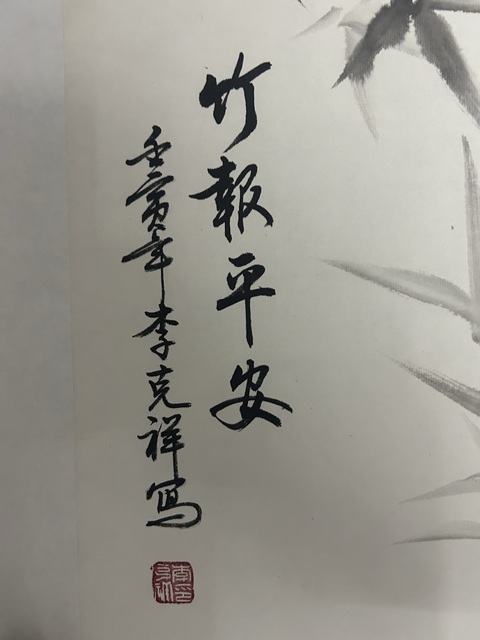 竹報平安
壬寅年李克祥寫